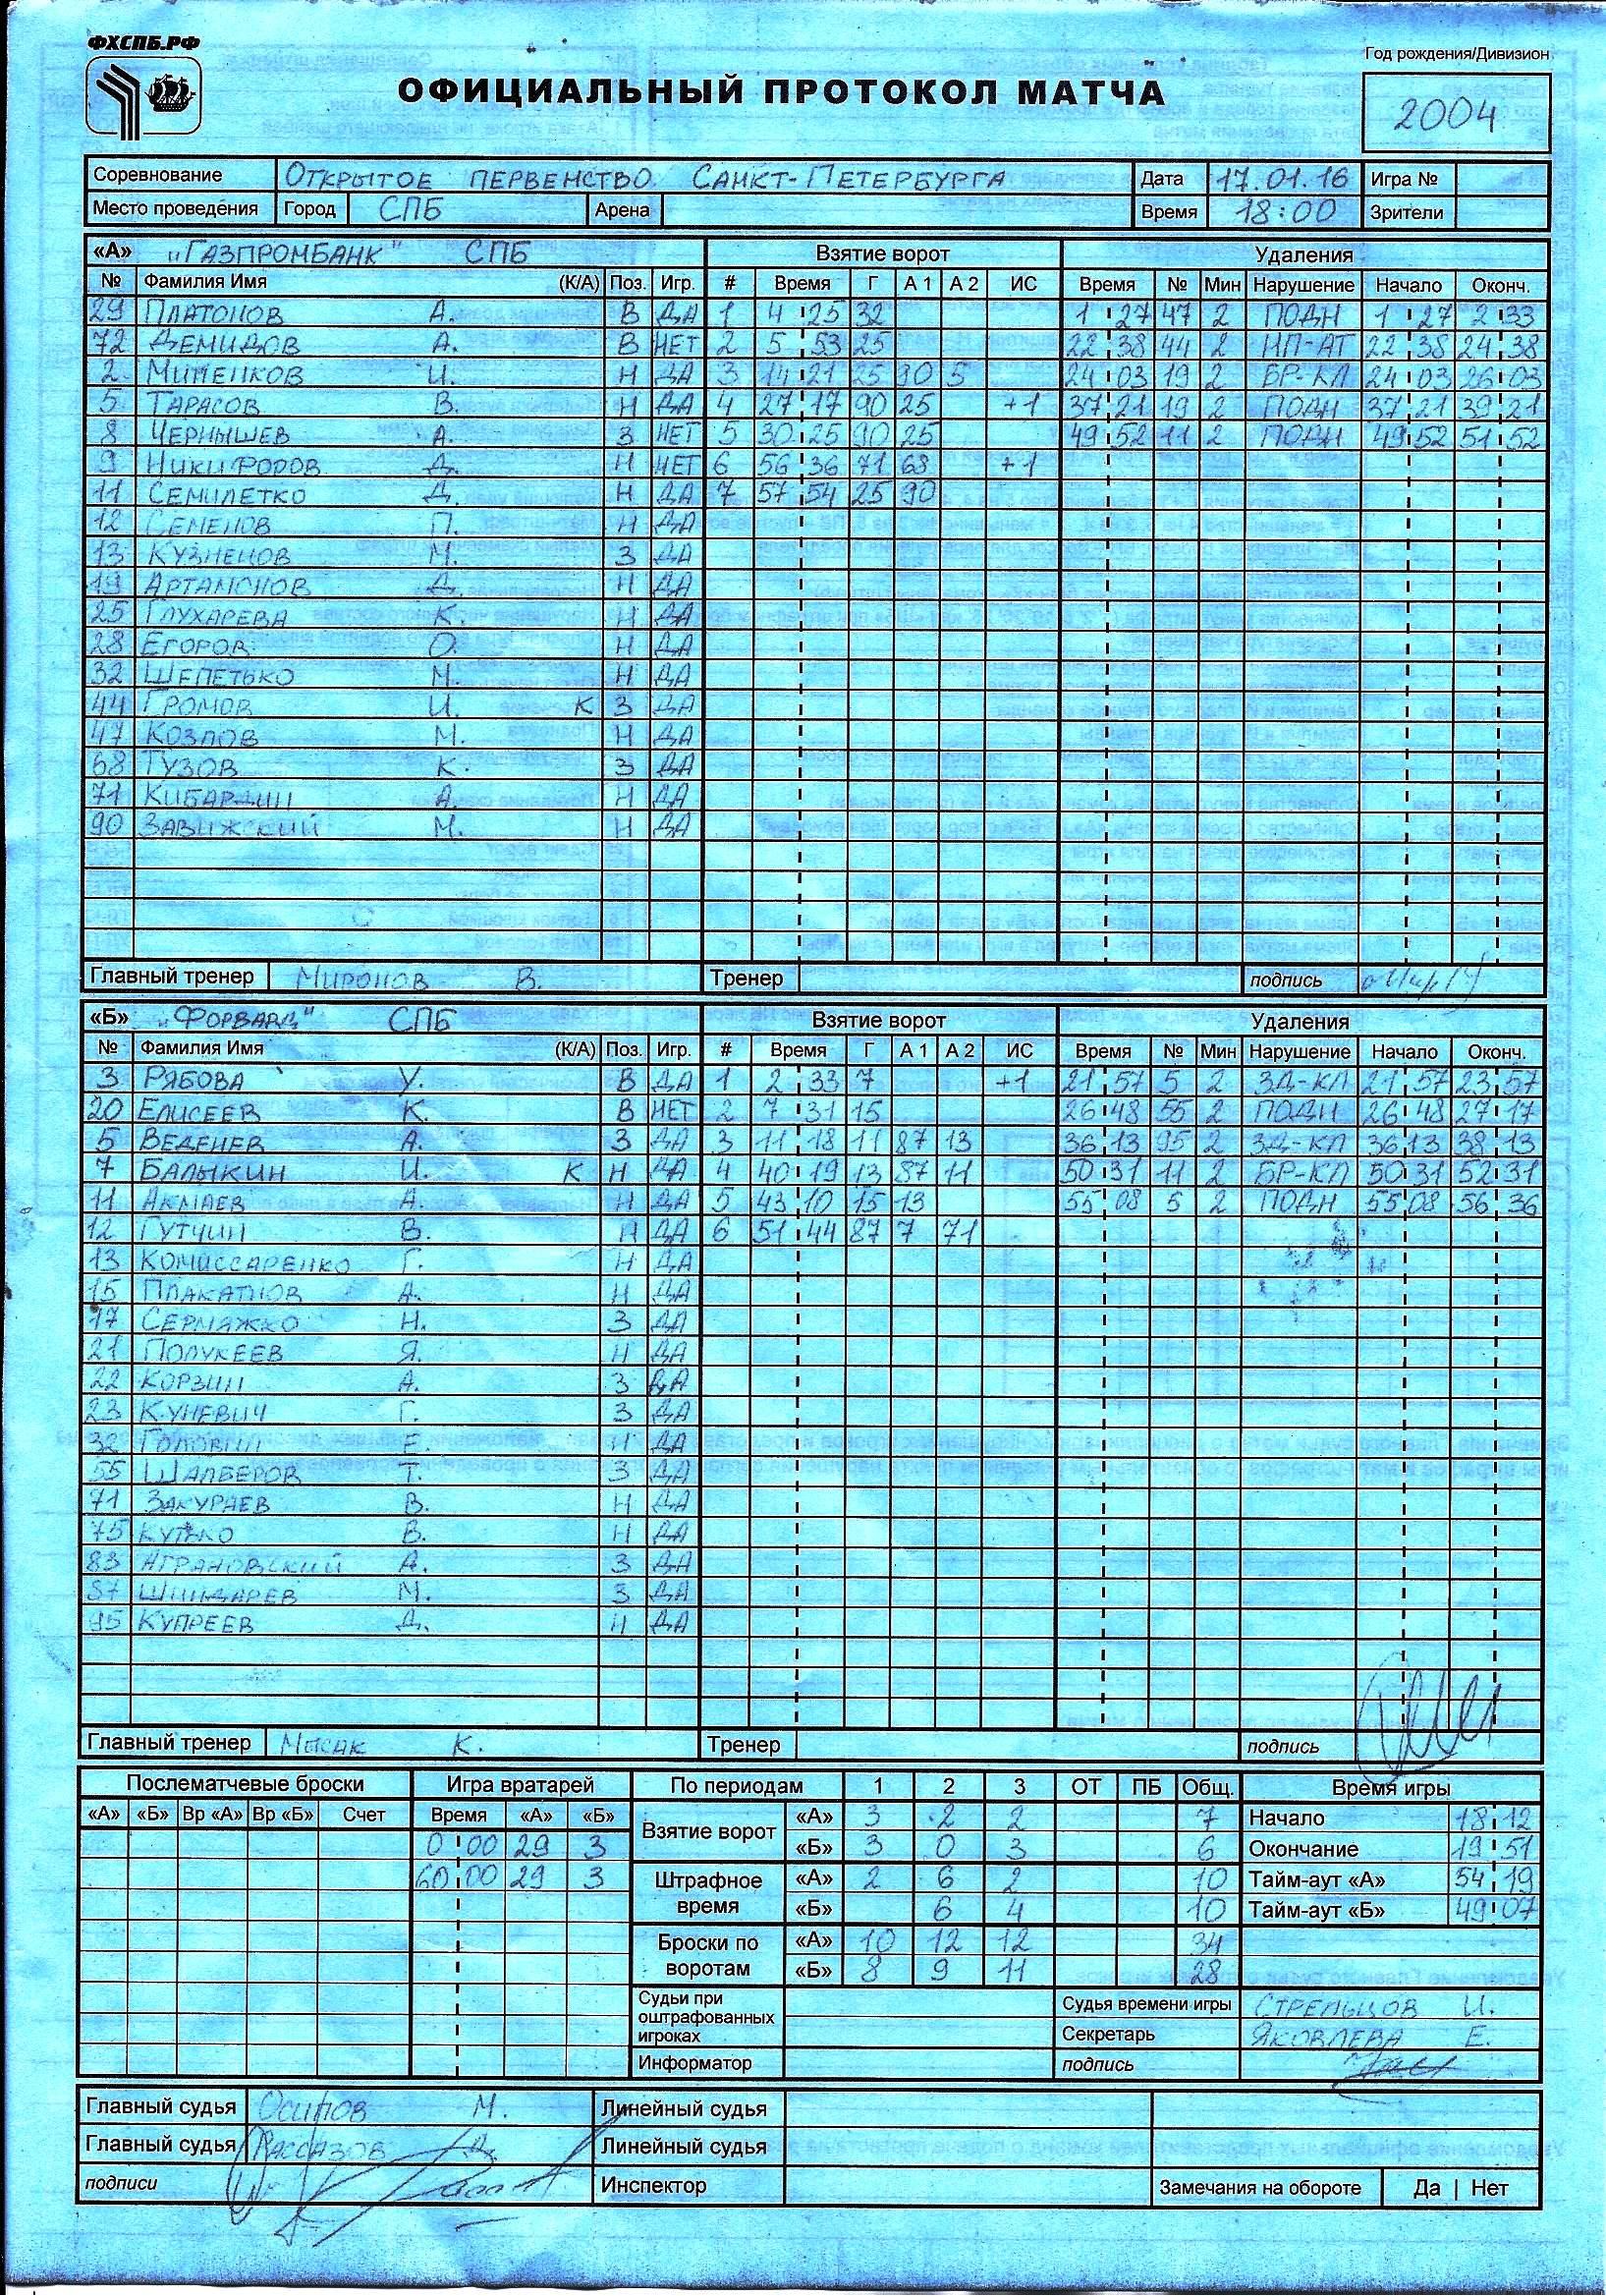 ФХСПБ.РФ
Год рождения/Дивизион
ОФИЦИАЛЬНЫЙ ПРОТОКОЛ МАТЧА
2004
Соревнование ОТКРЫТОЕ ПЕРВЕНСТВО САНКТ-ПЕТЕРБУРГА Дата 17.01.16 Игра №
Место проведения Город СПБ Арена Время 18:00 Зрители
«А» "ГАЗПРОМБАНК" СПБ Взятие ворот Удаления
№ Фамилия Имя (К/А) Поз. Игр. # Время Г А 1 А 2 ИС Время № Мин Нарушение Начало Оконч.
29 ПЛАТОНОВ А. В ДА 1 4 25 32 1 27 47 2 ПОДН 1 27 2 33
72 ДЕМИДОВ А. В НЕТ 2 5 53 25 22 38 44 2 НП-АТ 22 38 24 38
2 МИНЕНКОВ И. Н ДА 3 14 21 25 90 5 24 03 19 2 БР-КЛ 24 03 26 03
5 ТАРАСОВ В. Н ДА 4 27 17 90 25 +1 37 21 19 2 ПОДН 37 21 39 21
8 ЧЕРНЫШЕВ А. З НЕТ 5 30 25 90 25 49 52 11 2 ПОДН 49 52 51 52
9 НИКИФОРОВ Д. Н НЕТ 6 56 36 71 68 +1
11 СЕМИЛЕТКО Д. Н ДА 7 57 54 25 90
12 СЕМЕНОВ П. Н ДА
13 КУЗНЕЦОВ М. З ДА
19 АРТАМОНОВ Д. Н ДА
25 ГЛУХАРЕВА К. Н ДА
28 ЕГОРОВ О. Н ДА
32 ШЕПЕТЬКО М. Н ДА
44 ГРОМОВ И. К З ДА
47 КОЗЛОВ М. Н ДА
68 ГУЗОВ К. З ДА
71 КИБАРДИН А. Н ДА
90 ЗАВИЖСКИЙ М. Н ДА
Главный тренер МИРОНОВ В. Тренер подпись
«Б» "ФОРВАРД" СПБ Взятие ворот Удаления
№ Фамилия Имя (К/А) Поз. Игр. # Время Г А 1 А 2 ИС Время № Мин Нарушение Начало Оконч.
3 РЯБОВА У. В ДА 1 2 33 7 +1 21 57 5 2 ЗД-КЛ 21 57 23 57
20 ЕЛИСЕЕВ К. В НЕТ 2 7 31 15 26 48 55 2 ПОДН 26 48 27 17
5 ВЕДЕНЕВ А. З ДА 3 11 18 11 87 13 36 13 95 2 ЗД-КЛ 36 13 38 13
7 БАЛЫКИН И. К Н ДА 4 40 19 13 87 11 50 31 11 2 БР-КЛ 50 31 52 31
11 АКМАЕВ А. Н ДА 5 43 10 15 13 55 08 5 2 ПОДН 55 08 56 36
12 ГУТЧИН В. Н ДА 6 51 44 87 7 71
13 КОМИССАРЕНКО Г. Н ДА
15 ПЛАКАТНОВ А. Н ДА
17 СЕРМЯЖКО Н. З ДА
21 ПОЛУКЕЕВ Я. Н ДА
22 КОРЗИН А. З ДА
23 КУНЕВИЧ Г. З ДА
32 ГОЛОВИН Е. Н ДА
55 ШАЛБЕРОВ Т. З ДА
71 ЗАКУРАЕВ В. Н ДА
75 КУТЬКО В. Н ДА
83 АГРАНОВСКИЙ А. З ДА
87 ШИНДАРЕВ М. З ДА
95 КУПРЕЕВ Д. Н ДА
Главный тренер МЫСАК К. Тренер подпись
Послематчевые броски Игра вратарей По периодам 1 2 3 ОТ ПБ Общ. Время игры
«А» «Б» Вр «А» Вр «Б» Счет Время «А» «Б» Взятие ворот «А» 3 2 2 7 Начало 18 12
0 00 29 3 «Б» 3 0 3 6 Окончание 19 51
60 00 29 3 Штрафное время «А» 2 6 2 10 Тайм-аут «А» 54 19
«Б» 6 4 10 Тайм-аут «Б» 49 07
Броски по воротам «А» 10 12 12 34
«Б» 8 9 11 28
Судьи при оштрафованных игроках Судья времени игры СТРЕЛЬЦОВ И.
Секретарь ЯКОВЛЕВА Е.
Информатор подпись
Главный судья ОСИПОВ М. Линейный судья
Главный судья РАССАЗОВ Д. Линейный судья
подписи Инспектор Замечания на обороте Да | Нет